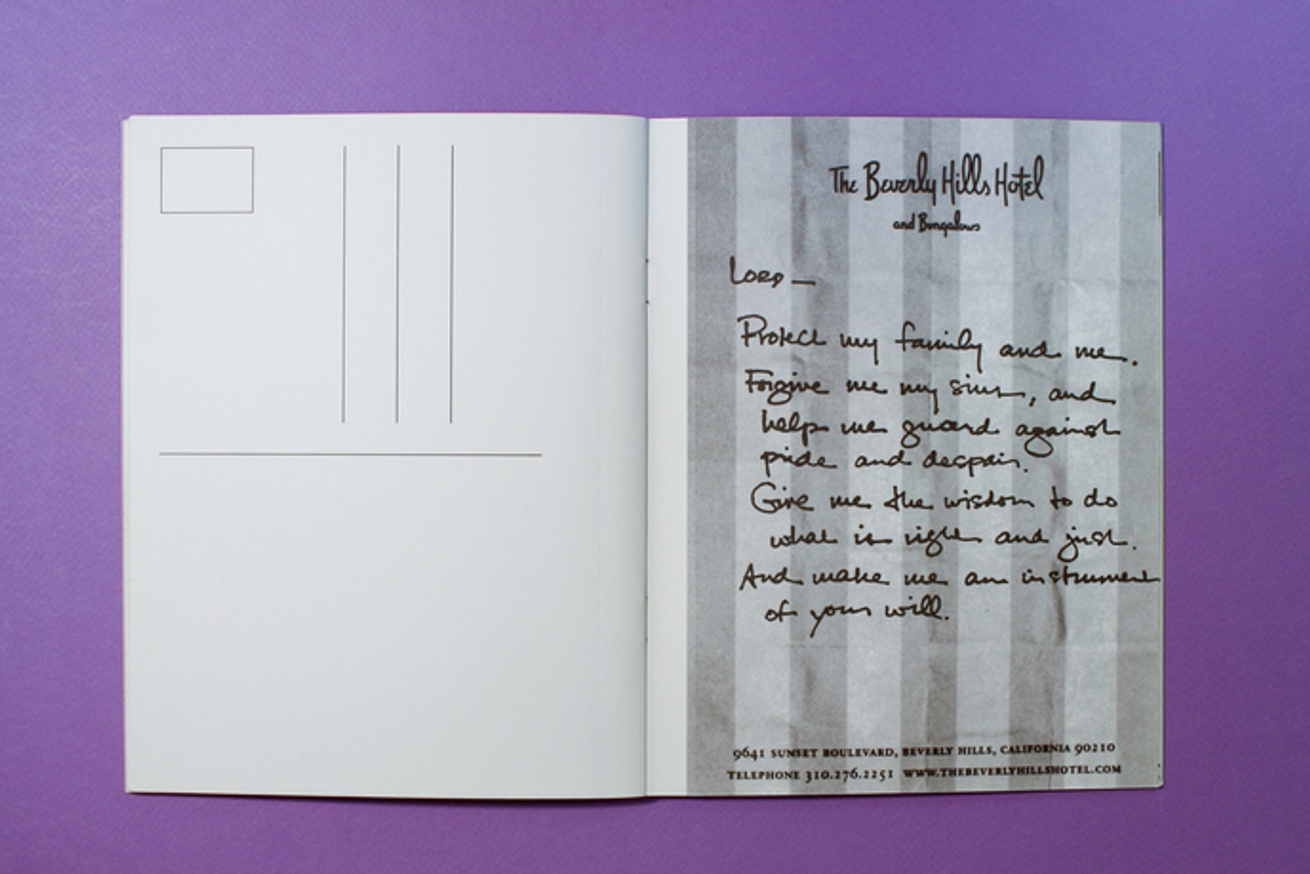 The Beverly Hills Hotel
and Bungalows
Lord —
Protect my family and me.
Forgive me my sins, and
help me guard against
pride and despair.
Give me the wisdom to do
what is right and just.
And make me an instrument
of your will.
9641 SUNSET BOULEVARD, BEVERLY HILLS, CALIFORNIA 90210
TELEPHONE 310.276.2251 WWW.THEBEVERLYHILLSHOTEL.COM